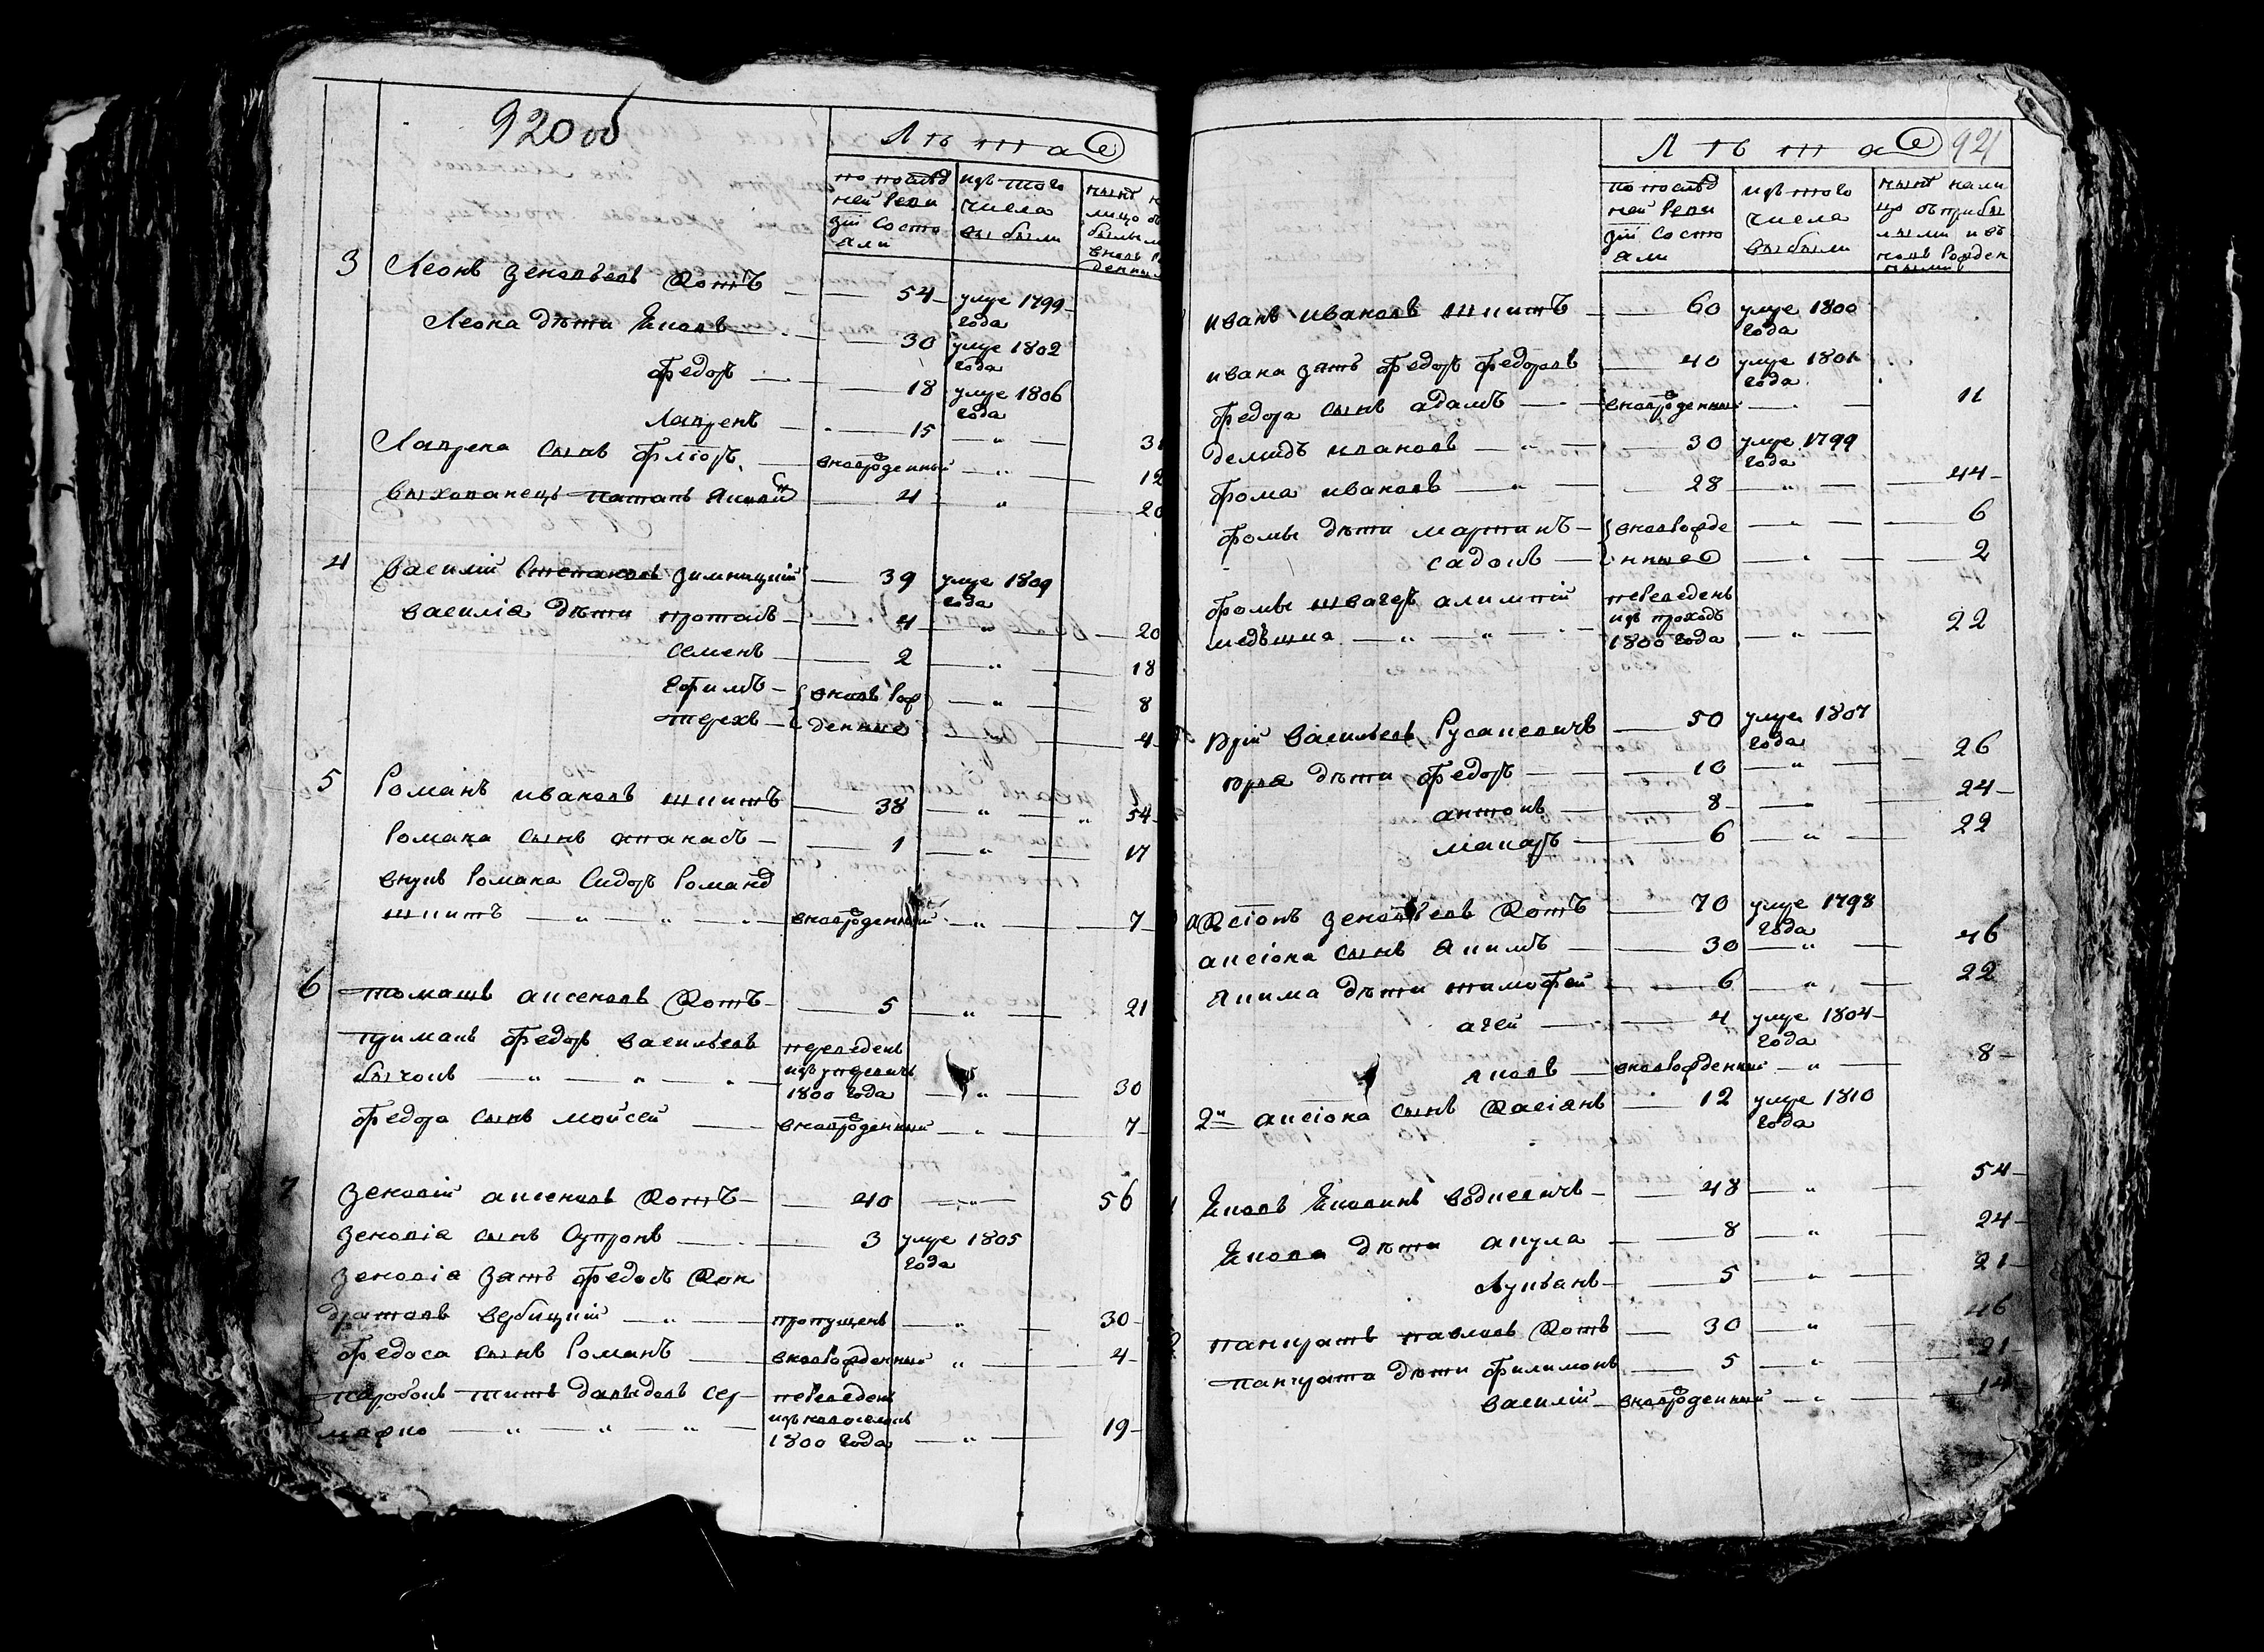 920 об
Лѣта
по послѣд
ней Реви
зіи состо
али
изъ того
числа
выбыли
нынѣ н
лицо
вновь Ро
3 Леонъ Зеновьевъ Котъ — 54 — умре 1799
года
Леона дѣти Яковъ — 30 умре 1802
года
Федоръ — 18 умре 1806
года
Лавренъ — 15 — " — 31
Лаврена сынъ Флюръ — вновьрожденный — " — 12
Выхованецъ Патапъ — 4 " 20
4 Василій Степановъ Зимницкій — 39 умре 1809
года
Василія дѣти Протасъ — 4 — " — 20
Семенъ — 2 — " — 18
Ефимъ — { вновь Рож — " — 8
Терехъ — { денные — " — 4
5 Романъ Ивановъ Шпитъ — 38 — " — 54
Романа сынъ Апанасъ — 1 — " — 17
внукъ Романа Сидоръ Романов
Шпитъ — " — " — вновьрожденный — " — 7
6 Томашъ Аксеновъ Котъ — 5 — " — 21
Приманъ Федоръ Васильевъ переведенъ
Бычокъ — " — " — изъ
1800 года — " — 30
Федора сынъ Мойсей — вновьрожденный — " — 7
7 Зеновій Аксеновъ Котъ — 40 — " — 56
Зеновія сынъ Супронъ — 3 умре 1805
года
Зеновія зять Федосъ Кон
дратовъ Вербицкій — " — пропущенъ — " — 30
Федоса сынъ Романъ — вновьрожденный " — 4
Паробокъ Титъ Давыдовъ Сер — переведенъ
изъ
1800 года — " — 19
Лѣта 921
по послѣд
ней Реви
зіи состо
али
изъ того
числа
выбыли
нынѣ нали
цо съ прибы
лыми и въ
новь Рожден
ными
Иванъ Ивановъ Шпитъ — 60 умре 1800
года
Ивана зять Федоръ Федоровъ — 40 умре 1801
года
Федора сынъ Адамъ — вновьрожденный — 11
Демидъ Ивановъ — " — 30 умре 1799
года
Фома Ивановъ — " — 28 — " — 44
Фомы дѣти Мартинъ — { вновьРожде — " — 6
Садокъ — { нные — " — 2
Фомы швагеръ Алимпій переведенъ
— " — " — изъ
1800 года — " — 22
Юрій Васильевъ Русакевичъ — 50 умре 1807
года
Юрья дѣти Федоръ — 10 — " — 26
Антонъ — 8 — " — 24
Макаръ — 6 — " — 22
Аксіонъ Зеновьевъ Котъ — 70 умре 1798
года
Аксіона сынъ Якимъ — 30 — " — 46
Якима дѣти Тимофей — 6 " — 22
Агей — 4 умре 1804
года
Яковъ — вновьрожденный — " — 8
2й Аксіона сынъ Касіянъ — 12 умре 1810
года
Яковъ Яковинъ — 48 — " — 54
Якова дѣти Акула — 8 — " — 24
Лукьянъ — 5 — " — 21
Панкратъ Павловъ Котъ — 30 — " — 46
Панкрата дѣти Филимонъ — 5 — " — 21
Василій — вновьрожденный — " — 14